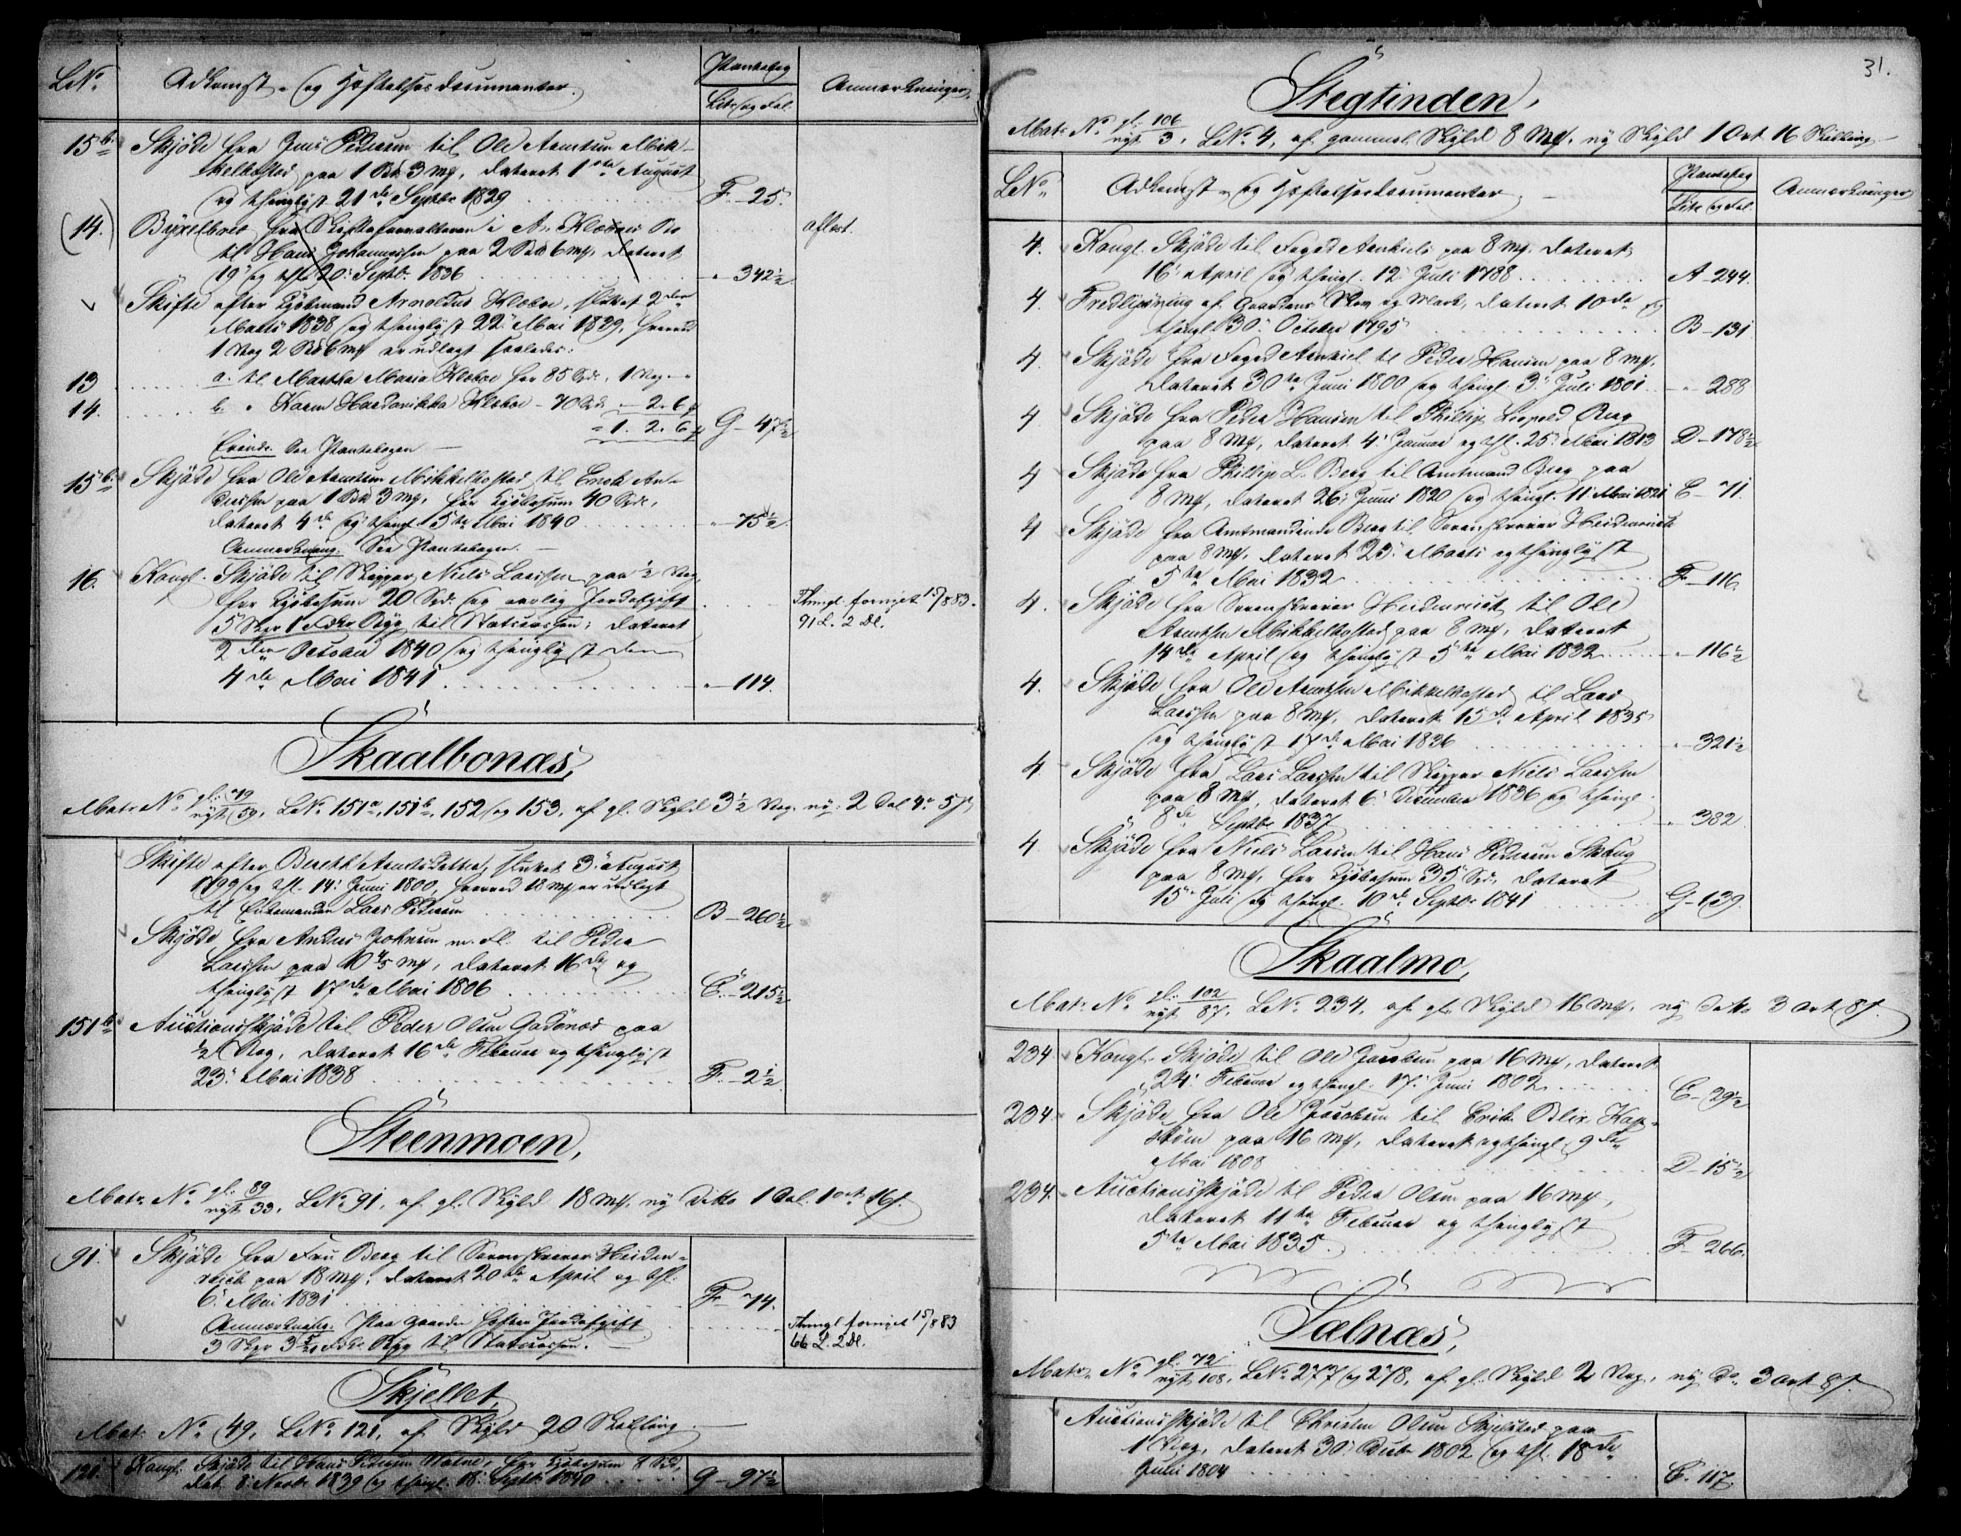 LNo. Adkomst- og Hæftelsesdocumenter. Pantebog Anmærkninger.
Litr. og Fol.
15 b. Skjöde fra Jens Pedersen til Ole Arntsen Mik-
kelbostad paa 1 Bd 3 Mk, dateret 1ste August
og thinglyst 21de Septbr 1829 F - 25.
(14.) Byxelbrev fra Skifteforvalteren i A. Klæboes Bo aflæst.
til Hans Johannessen paa 2 Bd 6 Mk, dateret
19 og thl. 20. Septbr. 1836 " - 342½
Skifte efter Kjöbmand Arnoldus Klæboe, sluttet 2den
Marts 1838 og thinglyst 22. Mai 1839, hvorved
1 Vog 2 Bd 6 Mk er udlagt saaledes:
13 a. til Martha Maria Klæboe for 85 Spd. 1 Vog - "
14. b. " Karen Hardovikka Klæboe - 70 Spd. - 2. 6
= 1. 2. 6 G - 47½
Eiendo. See Pantebogen
15 b. Skjöde fra Ole Arntsen Mikkelbostad til Enok An-
dersen paa 1 Bd 3 Mk, for Kjöbesum 40 Spd.,
dateret 4de og thingl. 5te Mai 1840 " - 75½
Anmærkning. See Pantebogen.
16. Kongl. Skjöde til Skipper Niels Larssen paa ½ Vog
for Kjöbesum 20 Spd. og aarlig Jordafgift Thingl. fornyet 15/8 83.
5 Skpr 1 Fdkr Byg til Statscassen; dateret 91 L. 2 Dl.
2den October 1840 og thinglyst den
4de Mai 1841 " - 114.
Skaalbonæs,
Matr. No. gl. 49 nyt 59, LNo 151a, 151b, 152 og 153, af gl. Skyld 3½ Vog, ny: 2 Dal 4 " 5 s
Skifte efter Bereth Arntsdatter, sluttet 3. August
1799 og thl. 14. Juni 1800, hvorved 18 Mk er udlagt
til Enkemanden Lars Pedersen B - 260½
Skjöde fra Anders Johnsen m. Fl. til Peder
Larssen paa 10 4/5 Mk, dateret 16de og
thinglyst 17de Mai 1806 C. - 215½
151 b. Auctionsskjöde til Peder Olsen Godönæs paa
½ Vog, dateret 16de Februar og thinglyst
23. Mai 1838 F. - 2½
Steenmoen,
Matr. No. gl. 89 nyt 33, LNo 91, af gl. Skyld 18 Mk, ny Ditto 1 Dal. 1 ort 16 s.
91. Skjöde fra Fru Berg til Sorenskriver Heiden-
reich paa 18 Mk, dateret 20de April og thl.
6. Mai 1831 F. - 74.
Anmærkning. Paa Gaarden hefter Jordafgift Thingl. fornyet 15/8 83
3 Skpr Fdkr Byg til Statscassen. 66 L. 2 Dl.
Skjellet,
Matr. No. 49, LNo 121, af Skyld 20 Skilling.
121. Kongl. Skjöde til Hans Pedersen Valnes, for Kjöbesum 8 Spd.
dat. 8. Novbr 1839 og thingl. 18. Septbr 1840 G - 97½
31.
Stegtinden,
Matr. No gl. 106 nyt 3, LNo 4, af gammel Skyld 8 Mk, ny Skyld 1 Ort 16 Skilling
LNo. Adkomst- og Hæftelsesdocumenter Pantebog Anmærkninger
Litr. og Fol.
4. Kongl. Skjöde til Foged Arnkiels paa 8 Mk, dateret
16. April og thingl. 12. Juli 1788 A - 244.
4. Fredlysning af Gaardens Skov og Mark, dateret 10de og
thingl. 30. October 1795 B - 131
4 Skjöde fra Foged Arnkiel til Peder Hansen paa 8 Mk,
dateret 30te Juni 1800 og thingl. 3. Juli 1801 " - 288
4 Skjöde fra Peder Hansen til Phillip Leopold Berg
paa 8 Mk, dateret 4. Januar og thl. 25. Mai 1813 D - 178½
4 Skjöde fra Phillip L. Berg til Amtmand Berg paa
8 Mk, dateret 26. Juni 1820 og thingl. 11. Mai 1821 E - 71.
4 Skjöde fra Amtmandinde Berg til Sorenskriver Heidenreich
paa 8 Mk, dateret 23. Marts og thinglyst
5te Mai 1832 F - 116.
4. Skjöde fra Sorenskriver Heidenreich til Ole
Arntsen Mikkelbostad paa 8 Mk, dateret
14de April og thinglyst 5te Mai 1832 " - 116½
4. Skjöde fra Ole Arntsen Mikkelbostad til Lars
Larssen paa 8 Mk, dateret 15de April 1835
og thinglyst 17de Mai 1836 " - 321½
4. Skjöde fra Lars Larssen til Skipper Niels Larssen
paa 8 Mk, dateret 6. December 1836 og thingl.
8de Septbr 1837 " - 382.
4. Skjöde fra Niels Larsen til Hans Pedersen Skaug
paa 8 Mk, for Kjöbesum 35 Spd, dateret
15. Juli og thingl. 10de Septbr 1841 G - 139.
Skaalmo,
Matr. No gl. 102 nyt 87, LNo 234, af gl. Skyld 16 Mk, ny ditto 3 Ort 8 s.
234. Kongl. Skjöde til Ole Jacobsen paa 16 Mk, dateret
24. Februar og thingl. 17. Juni 1802 C - 29½
234. Skjöde fra Ole Jacobsen til Erik Blix Hag-
ström paa 16 Mk, dateret og thingl. 9de
Mai 1808 D - 15½
234. Auctionsskjöde til Peder Olsen paa 16 Mk,
dateret 11te Februar og thinglyst
5te Mai 1835. F - 266.
Sælnæs,
Matr. No gl. 72 nyt 108, LNo 277 og 278, af gl. Skyld 2 Vog, ny Do 3 Ort 8 s.
Auctionsskjöde til Christen Olsen Skjelstad paa
1 Vog, dateret 30. Decbr 1802 og thl. 18de
Juli 1804 C. 117.